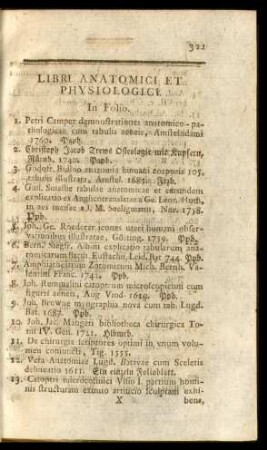 321
LIBRI ANATOMICI ET
PHYSIOLOGICI.
In Folio.
1. Petri Camper demonstrationes anatomico-pa-
thologicae cum tabulis aeneis, Amstelodami
1760. Papb.
2. Christoph Jacob Trews Osteologie mit Kupfern,
Nürnb. 1740. Papb.
3. Godofr. Bidloo anatomia humani corporis 105.
tabulis illustrata, Amstel. 1685.
4. Guil. Smellie tabulae anatomicae et eiusdem
explicatio ex Anglico translatae a Ge. Leon. Huth,
in aes incisae a J. M. Seeligmann, Nor. 1758.
Ppb.
5. Joh. Ge. Roederer icones uteri humani obser-
vationibus illustratae, Götting. 1759. Ppb.
6. Bern. Siegfr. Albini explicatio tabularum ana-
tomicarum Barth. Eustachii, Leid. Bat. 744. Ppb.
7. Amphitheatrum Zootomicum Mich. Bernh. Va-
lentini Franc. 1742. Ppb.
8. Joh. Remmelini catoptrum microscopicum cum
figuris aeneis, Aug Vind. 1619. Ppb.
9. Joh. Browne myographia nova cum tab. Lugd.
Bat. 1687. Ppb.
10. Joh. Jac. Mangeti bibliotheca chirurgica To-
mi IV. Gen. 1721.
11. De chirurgia scriptores optimi in unum volu-
men coniuncti, Tig. 1555.
12. Vera Anatomiae Lugd. Batavae cum Sceletis
delineatio 1611. Ein einzeln Folioblatt.
13. Catoptri microcosmici Visio I. partium homi-
nis structuram eximio artificio sculptam exhi-
X bens,